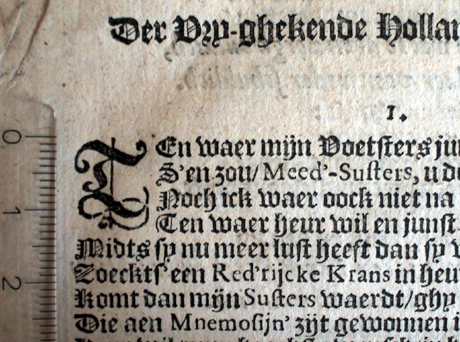 Der Vry-ghekende Hollan
1.
TEn waer mijn Voetsters jun
S'en zou/ Meed'-Susters, u d
Noch ick waer oock niet na
Ten waer heur wil en junst
Midts sy nu meer lust heeft dan sy v
Zoeckts' een Red'rijcke Krans in heur
Komt dan mijn Susters waerdt/ghy
Die aen Mnemosijn' zijt gewonnen i
0
1
2